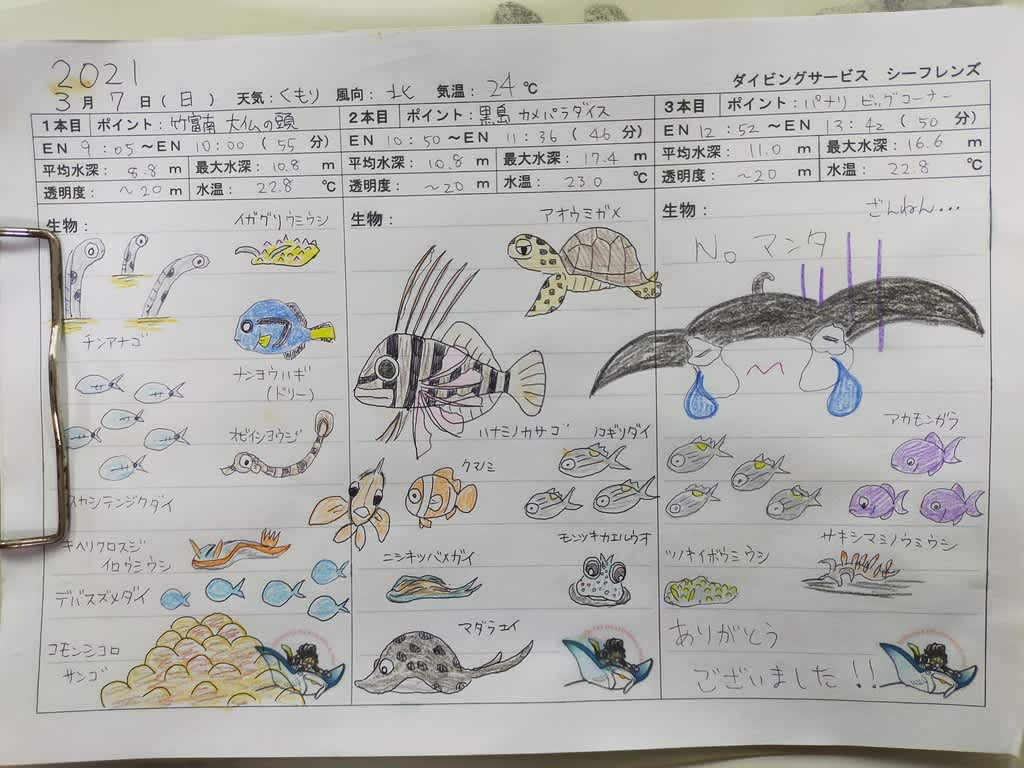 2021
3月 7日(日) 天気:くもり 風向:北 気温:24℃
ダイビングサービス シーフレンズ
1本目 ポイント:竹富南 大仏の頭
EN 9:05～EN 10:00 (55 分)
平均水深: 8.8 m 最大水深: 10.8 m
透明度: ～20 m 水温: 22.8 ℃
生物:
イガグリウミウシ
チンアナゴ
ナンヨウハギ
(ドリー)
オビイシヨウジ
スカシテンジクダイ
キベリクロスジ
イロウミウシ
デバスズメダイ
コモンシコロ
サンゴ
2本目 ポイント:黒島 カメパラダイス
EN 10:50～EN 11:36 (46 分)
平均水深: 10.8 m 最大水深: 17.4 m
透明度: ～20 m 水温: 23.0 ℃
生物:
アオウミガメ
ハナミノカサゴ
ノコギリダイ
クマノミ
ニシキツバメガイ
モンツキカエルウオ
マダラエイ
3本目 ポイント:パナリ ビッグコーナー
EN 12:52～EN 13:42 (50 分)
平均水深: 11.0 m 最大水深: 16.6 m
透明度: ～20 m 水温: 22.8 ℃
生物:
ざんねん...
No マンタ
アカモンガラ
ツノキイボウミウシ
サキシマミノウミウシ
ありがとう
ございました!!